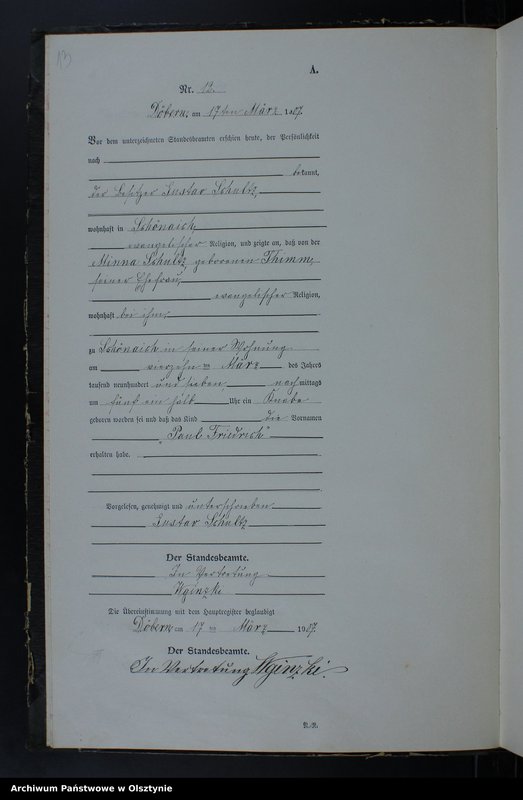 13
A.
Nr. 12.
Döbern, am 17ten März 1907.
Vor dem unterzeichneten Standesbeamten erschien heute, der Persönlichkeit
nach
bekannt,
der Besitzer Gustav Schultz,
wohnhaft in Schönaich,
evangelischer Religion, und zeigte an, daß von der
Minna Schultz, geborenen Thimm,
seiner Ehefrau,
evangelischer Religion,
wohnhaft bei ihm,
zu Schönaich in seiner Wohnung
am vierzehn ten März des Jahres
tausend neunhundert und sieben nachmittags
um fünf ein halb Uhr ein Knabe
geboren worden sei und daß das Kind die Vornamen
"Paul Friedrich"
erhalten habe.
Vorgelesen, genehmigt und unterschrieben
Gustav Schultz
Der Standesbeamte.
In Vertretung
Wginzki
Die Übereinstimmung mit dem Hauptregister beglaubigt
Döbern am 17 ten März 1907.
Der Standesbeamte.
In Vertretung Wginzki.
Archiwum Państwowe w Olsztynie